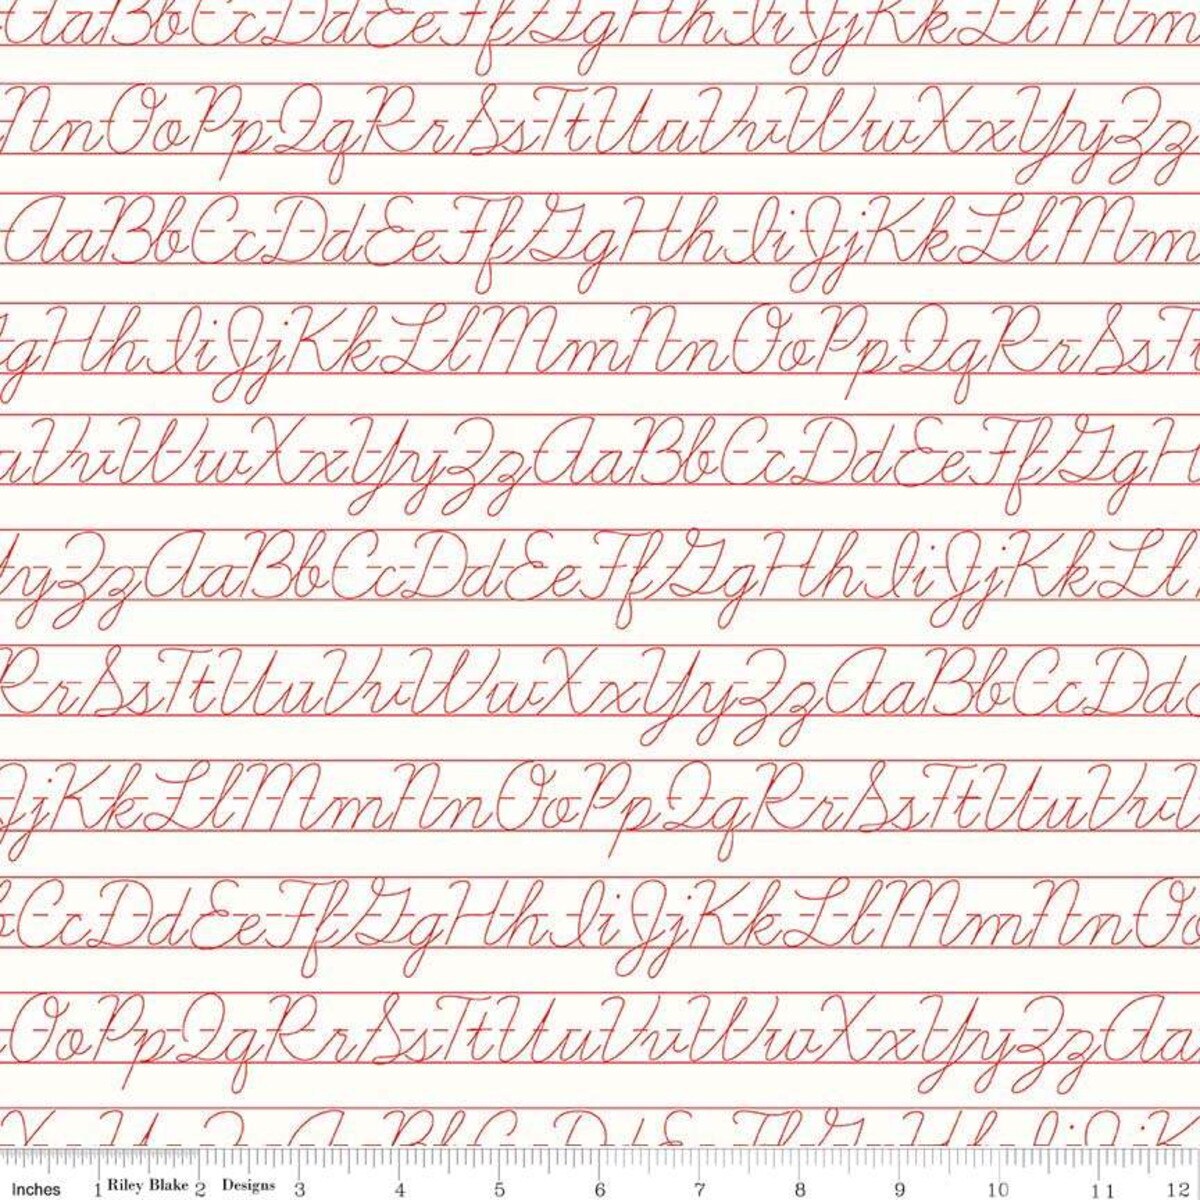 AaBbCcDdEeFfGgHhIiJjKkLlMm
NnOoPpQqRrSsTtUuVvWwXxYyZz
AaBbCcDdEeFfGgHhIiJjKkLlMm
gHhIiJjKkLlMmNnOoPpQqRrSsTt
uVvWwXxYyZzAaBbCcDdEeFfGgH
yZzAaBbCcDdEeFfGgHhIiJjKkLl
RrSsTtUuVvWwXxYyZzAaBbCcDd
JjKkLlMmNnOoPpQqRrSsTtUuVv
bCcDdEeFfGgHhIiJjKkLlMmNnOo
OoPpQqRrSsTtUuVvWwXxYyZzAa
Inches 1 Riley Blake 2 Designs 3 4 5 6 7 8 9 10 11 12